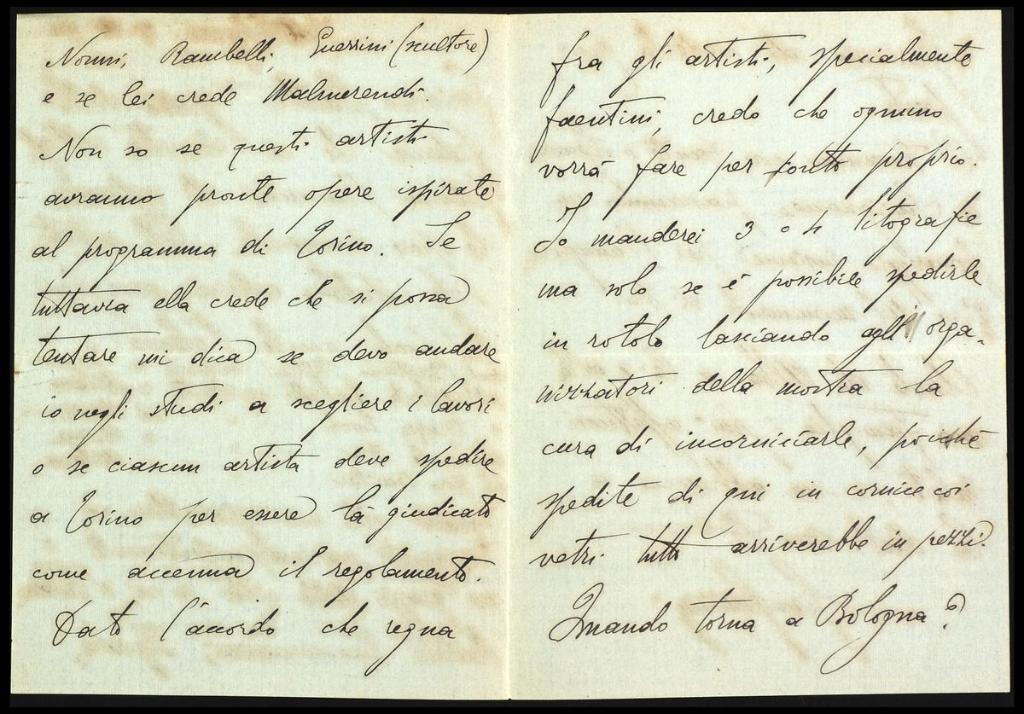 Nonni, Rambelli, Guerrini (scultore)
e se lei crede Malmerendi.
Non so se questi artisti
avranno pronte opere ispirate
al programma di Torino. Se
tuttavia ella crede che si possa
tentare mi dica se devo andare
io negli studi a scegliere i lavori
o se ciascun artista deve spedire
a Torino per essere là giudicato
come accenna il regolamento.
Dato l'accordo che regna
fra gli artisti, specialmente
faentini, credo che ognuno
vorrà fare per conto proprio.
Io manderei 3 o 4 litografie
ma solo se è possibile spedirle
in rotolo lasciando agli orga-
nizzatori della mostra la
cura di incorniciarle, poiché
spedite di qui in cornice coi
vetri tutto arriverebbe in pezzi.
Quando torna a Bologna?